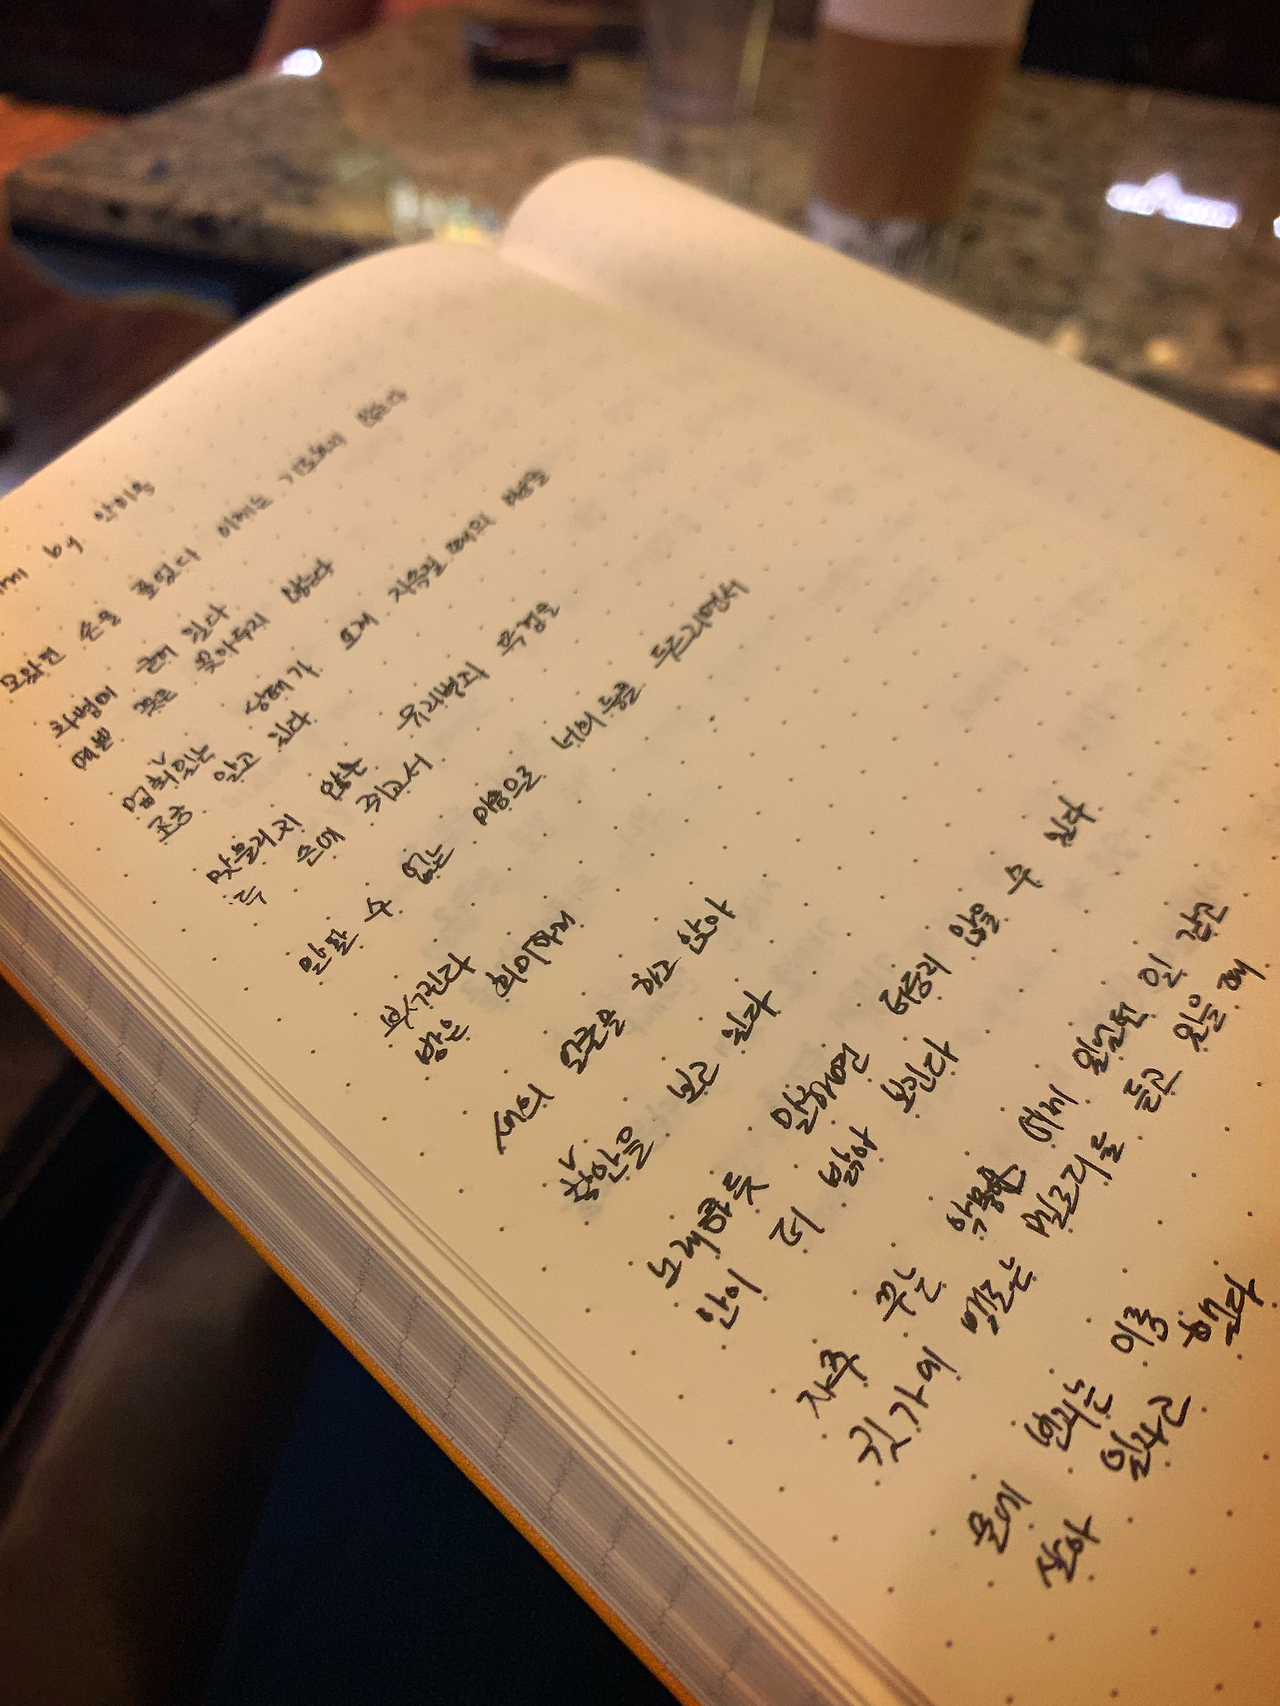 by 안미옥
모았던 손을 풀었다 이제는 기도하지 않는다
화병이 굳어 있다
예쁜 꽃은 꽂아두지 않는다
멈춰있는 상태가 오래 지속될 때의 마음을
조금 알고 있다
맞물리지 않는 유리병과 뚜껑을
두 손에 쥐고서
말할 수 없는 마음으로 너의 등을 두드리면서
부서진다
밤은 희미하게
새의 얼굴을 하고 앉아
창 안을 보고 있다
노래하듯 말하면 더듬지 않을 수 있다
안이 더 밝아 보인다
자주 꾸는 악몽은 어제 있었던 일 같고
귓가에 맴도는 멜로디를 듣고 있을 때
물에 번지는 이름
살아 있자고 했다